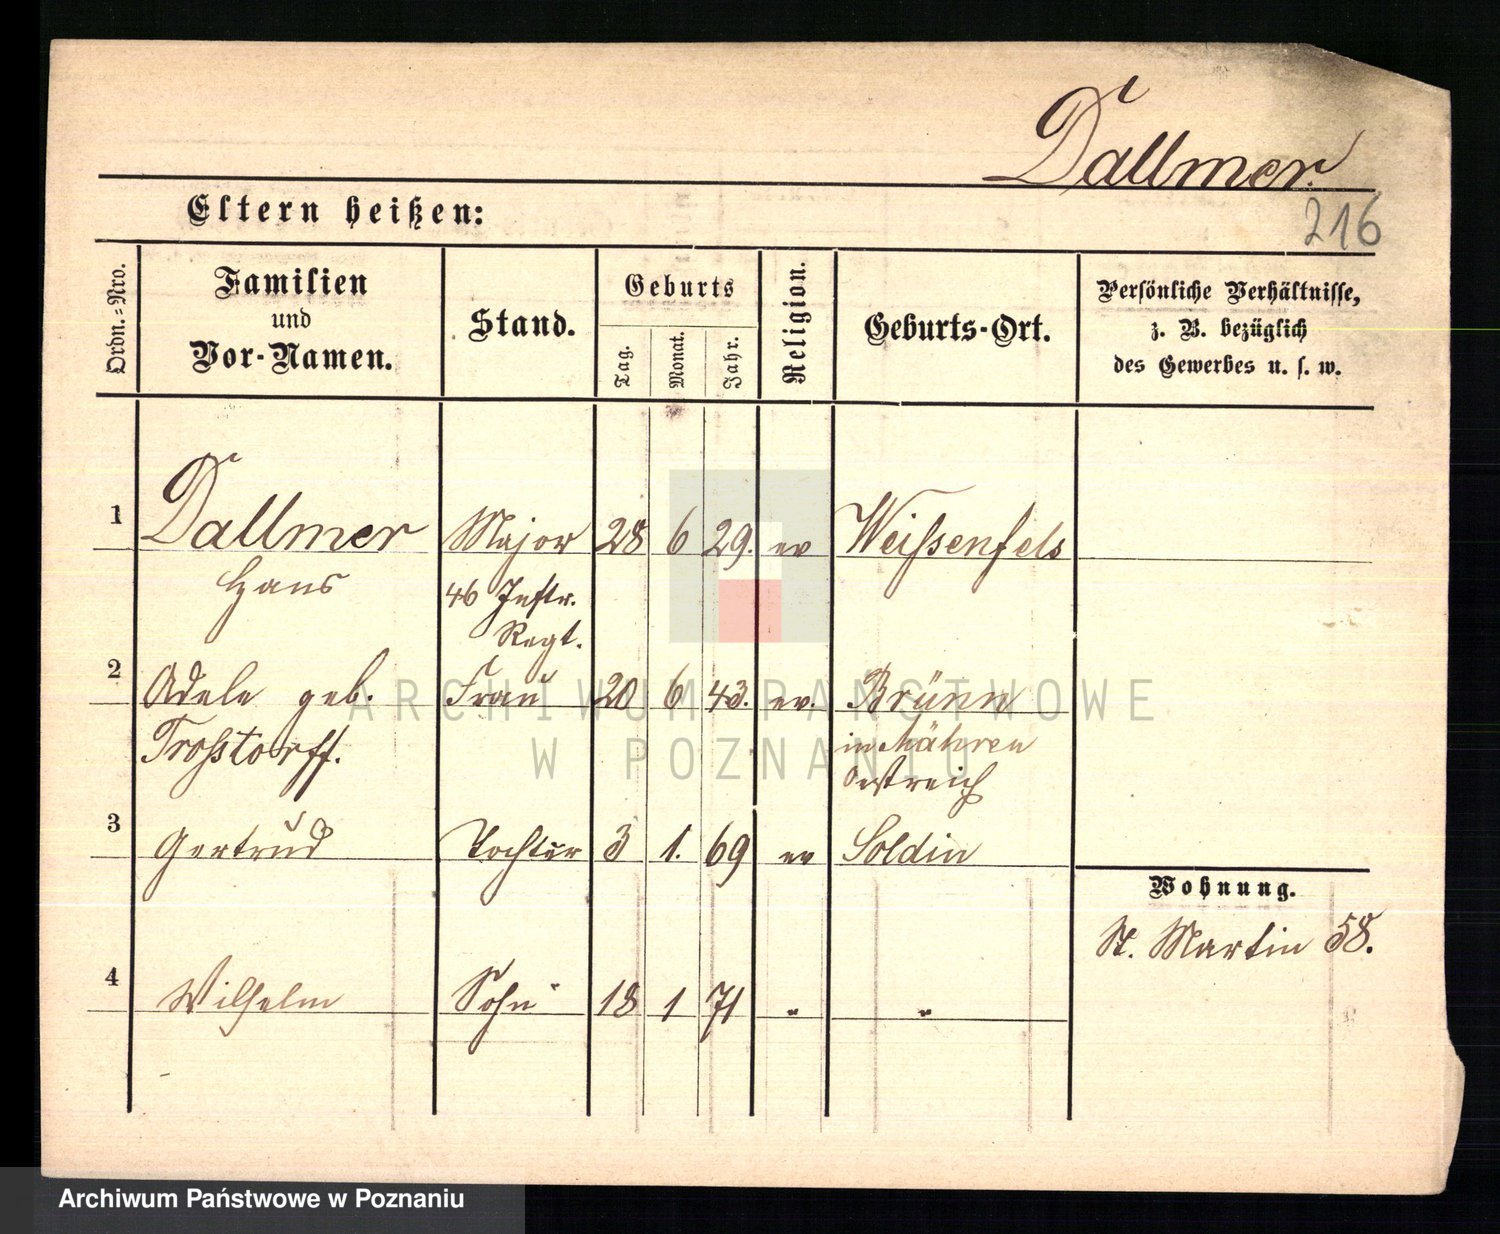 Dallmer.
216
Eltern heißen:
Ordn.-Nro.
Familien
und
Vor-Namen.
Stand.
Geburts
Tag.
Monat.
Jahr.
Religion.
Geburts-Ort.
Persönliche Verhältnisse,
z. B. bezüglich
des Gewerbes u. s. w.
1 Dallmer Major 28 6 29. ev Weißenfels
Hans 46 Inftr.
Regt.
2 Adele geb. Frau 20 6 43. ev. Brünn
Troßtorff. in Mähren
Oestreich
3 Gertrud Tochter 3 1. 69 ev Soldin
Wohnung.
St. Martin 58.
4 Wilhelm Sohn 18 1 71 " "
ARCHIWUM PAŃSTWOWE
W POZNANIU
Archiwum Państwowe w Poznaniu